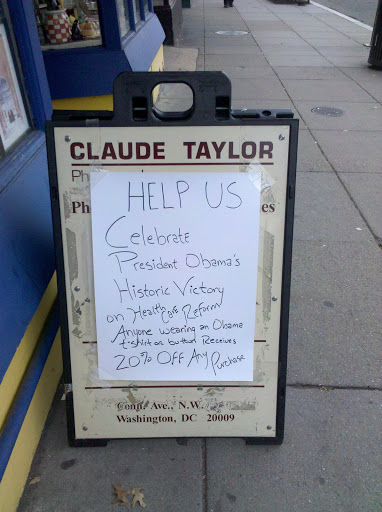 CLAUDE TAYLOR
Ph
Ph es
HELP US
Celebrate
President Obama's
Historic Victory
on Health Care Reform
Anyone wearing an Obama
t-shirt or button Receives
20% OFF Any Purchase
Conn. Ave., N.W.
Washington, DC 20009